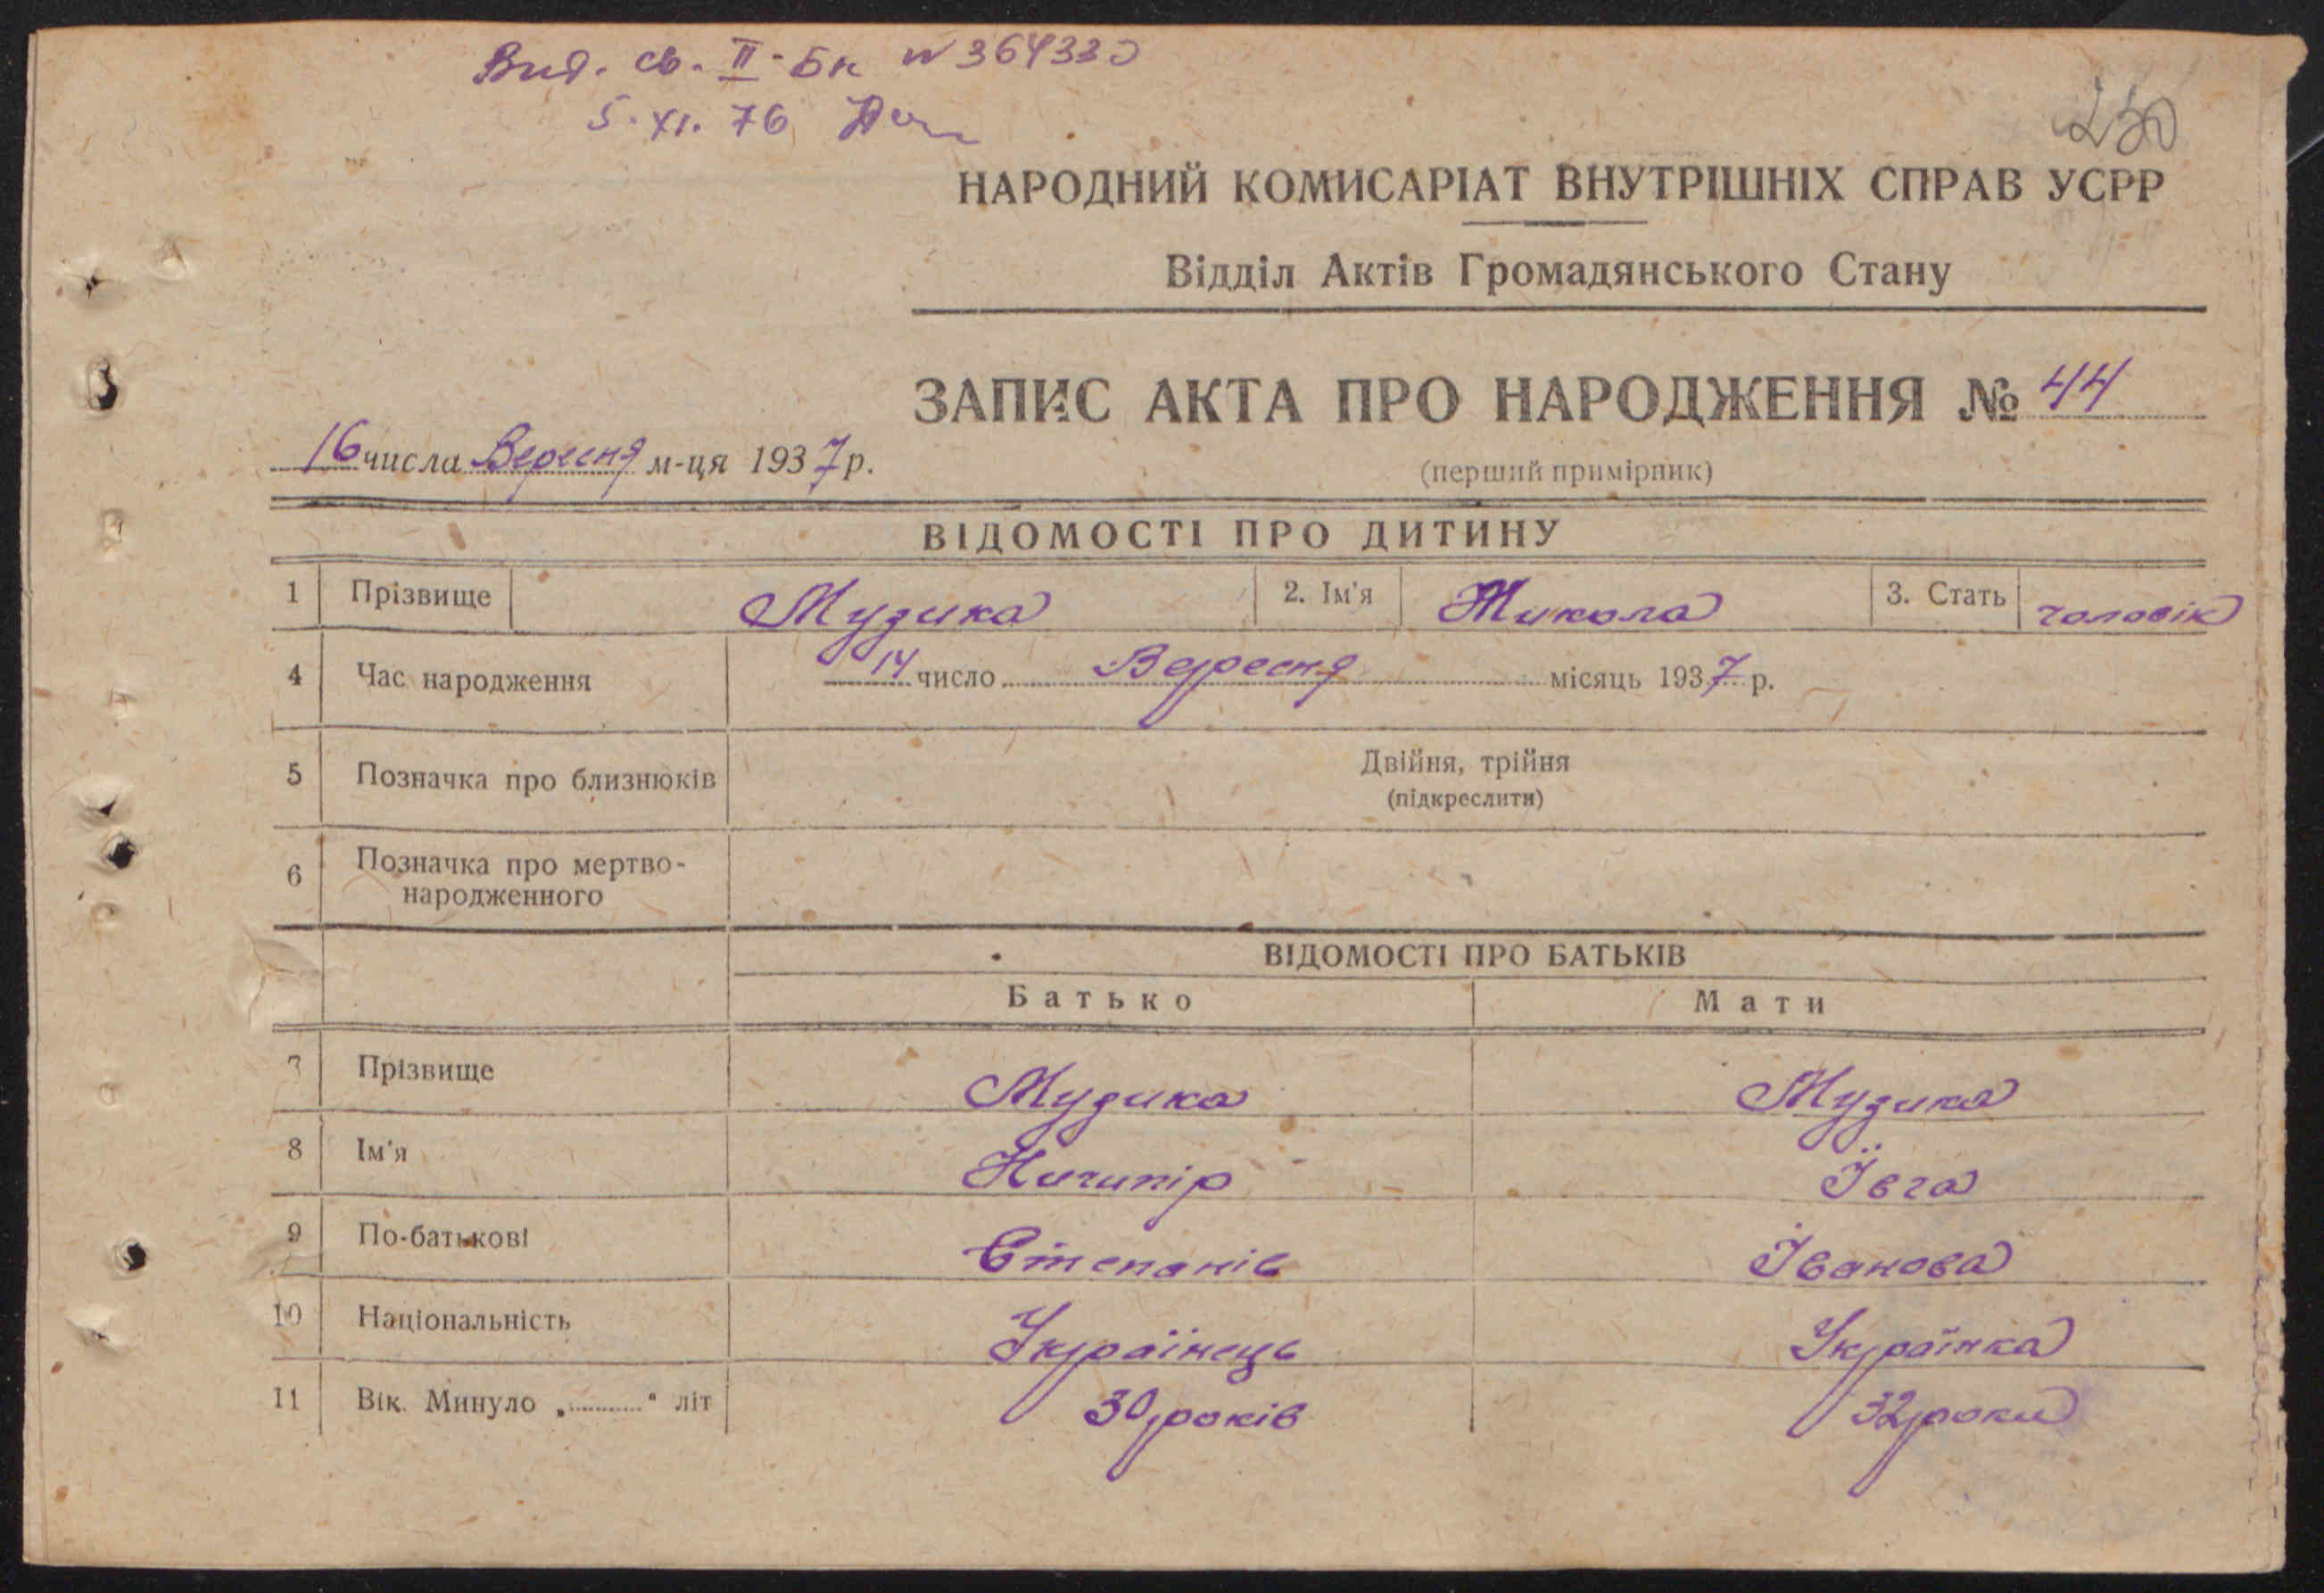 Вид. св. II-БК № 364330
5.XI.76
230
НАРОДНИЙ КОМИСАРІАТ ВНУТРІШНІХ СПРАВ УСРР
Відділ Актів Громадянського Стану
ЗАПИС АКТА ПРО НАРОДЖЕННЯ № 44
16 числа Вересня м-ця 1937 р.
(перший примірник)
ВІДОМОСТІ ПРО ДИТИНУ
1 Прізвище Музика 2. Ім'я Микола 3. Стать чоловік
4 Час народження 14 число Вересня місяць 1937 р.
5 Позначка про близнюків Двійня, трійня
(підкреслити)
6 Позначка про мертво-
народженного
ВІДОМОСТІ ПРО БАТЬКІВ
Батько Мати
7 Прізвище Музика Музика
8 Ім'я Ничипір Ївга
9 По-батькові Степанів Іванова
10 Національність Українець Українка
11 Вік. Минуло „..........“ літ 30 років 32 роки